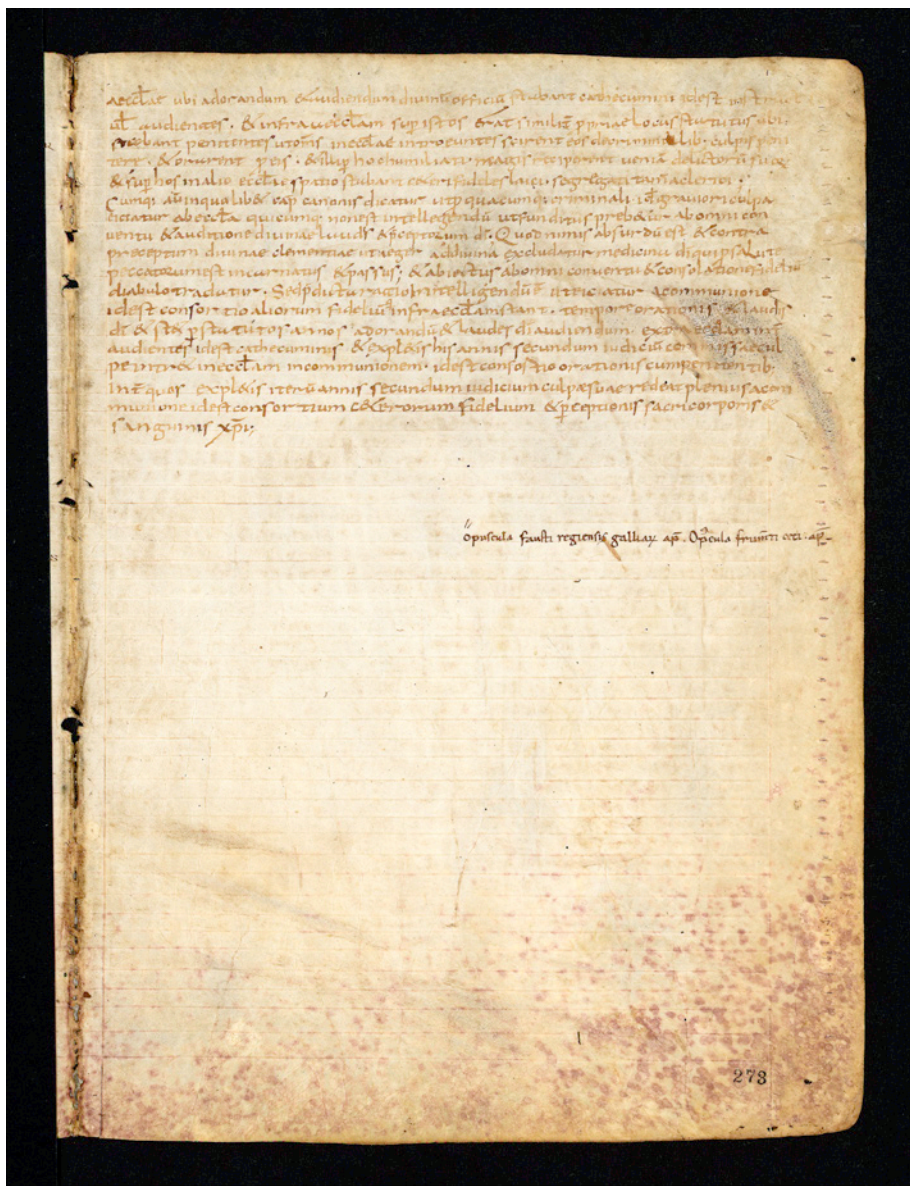 aecclae ubi adorandum &audiendum divinū officiū stabant cathecumini idest
ul audientes . & infra aecclam sup istos erat similit locus statutus ubi
stabant penitentes ut omīs inecclae introeuntes scirent eos decriminalib; culpis peni
tere . & orarent p eis . & illi p hoc humiliati magis reciperent veniā delictorū suorꝫ
& sup hos inalio eccliae spatio stabant c&eri fideles laici . segregati tam aclericis .
Cumqi au inquolib& cap canonis dicatur ut p quacumqi criminali id graviori culpa
eiciatur abeccla quicumqi nonest intellegendū ut funditus prob&ur ab omni con
ventu & auditione divinae laudis &pceptorum dī . Quod nimis absurdū est & contra
preceptum divinae clementiae ut aeger addivina excludatur medicina diqui p salute
peccatorum est incarnatus & passus ; & abiectus abomni conventu & consolatione fideliū
diabulo tradatur . Sed intelligendū ut eiciatur acommunione
idest consortio aliorum fideliū infra aecclam stant . tempore orationis & laudis
dī & st& p statutos annos adorandū & laudes dī audiendum extra aecclam int
audientes idest cathecuminis & expl&is his annis secundum iudiciū
intr& inecclam incommunionem idest consortio orationis cum penitentib;
Int quos expl&is iterū annis secundum iudicium culpae suae redeat plenius acom
munione idest consortium c&erorum fidelium & pceptionis sacri corporis &
sanguinis xpī ;
opuscula fausti regiensis galliaꝝ ap̄ . Opscula
273